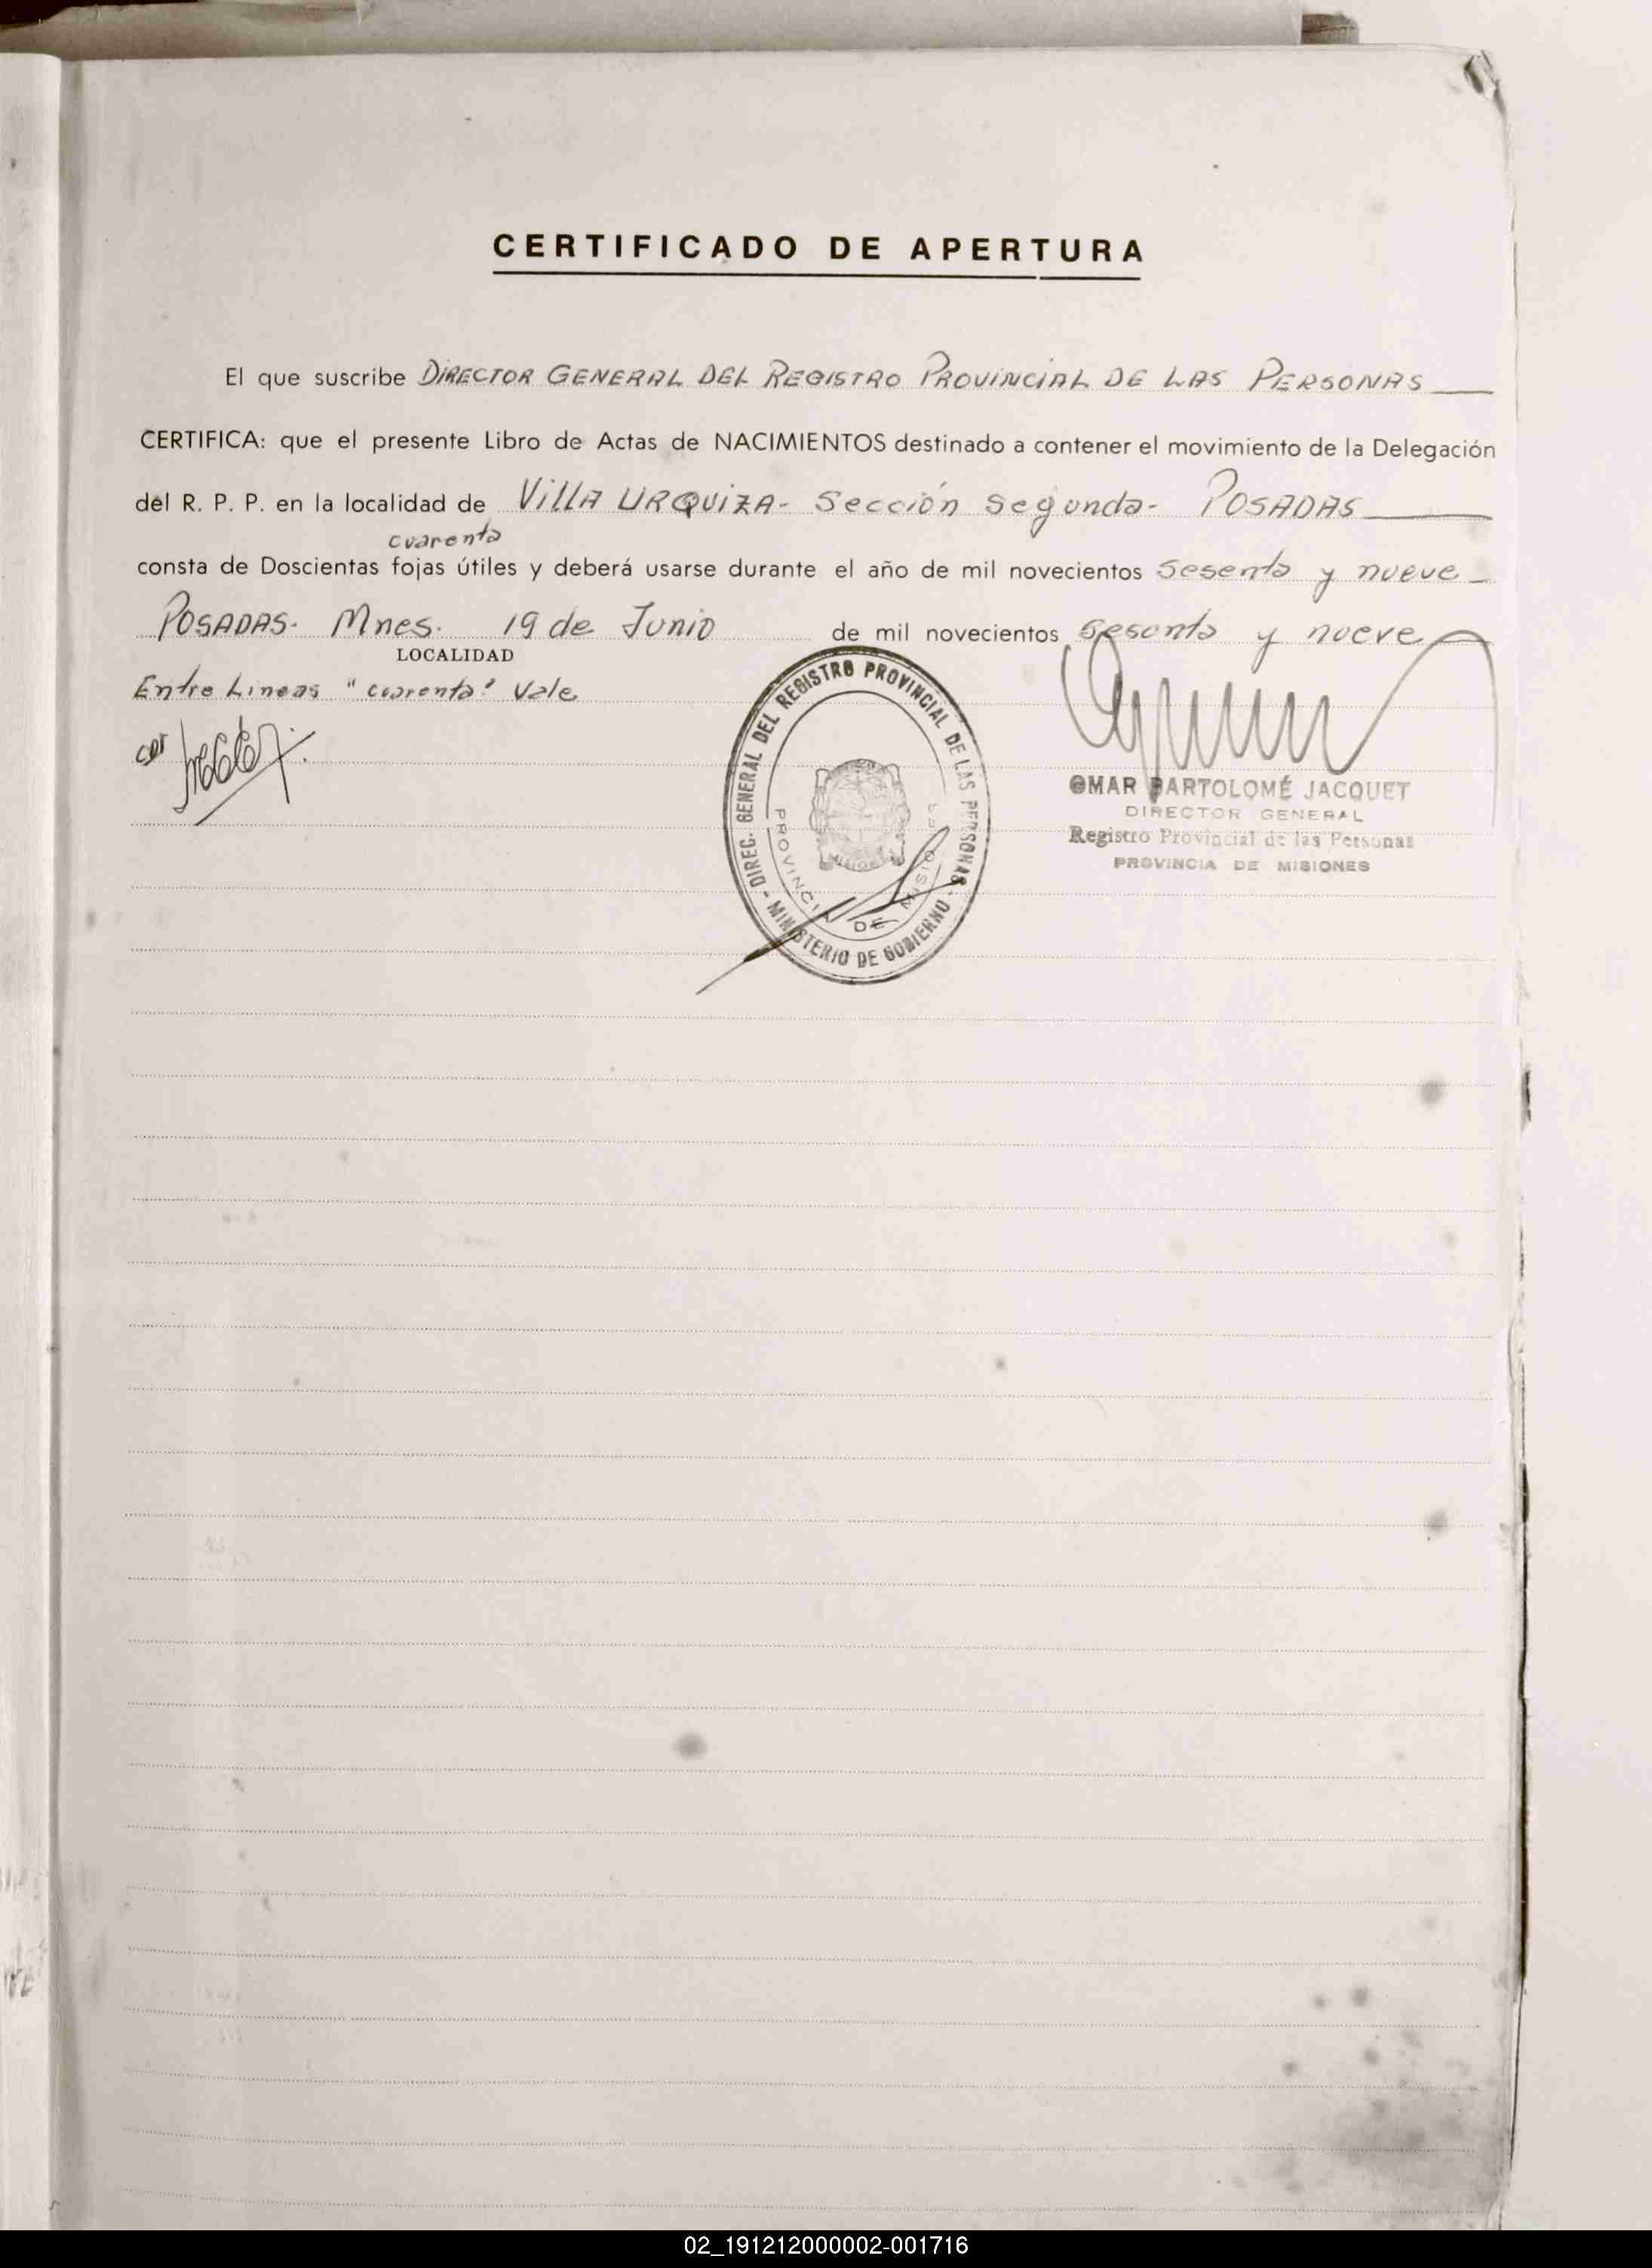 CERTIFICADO DE APERTURA
El que suscribe DIRECTOR GENERAL DEL REGISTRO PROVINCIAL DE LAS PERSONAS
CERTIFICA: que el presente Libro de Actas de NACIMIENTOS destinado a contener el movimiento de la Delegación
del R. P. P. en la localidad de VILLA URQUIZA- Sección Segunda- POSADAS
cuarenta
consta de Doscientas fojas útiles y deberá usarse durante el año de mil novecientos Sesenta y nueve
POSADAS- Mnes. 19 de Junio de mil novecientos Sesenta y nueve
LOCALIDAD
Entre Lineas "cuarenta" Vale
DIREC. GENERAL DEL REGISTRO PROVINCIAL DE LAS PERSONAS - MINISTERIO DE GOBIERNO -
PROVINCIA DE MISIONES
OMAR BARTOLOMÉ JACQUET
DIRECTOR GENERAL
Registro Provincial de las Personas
PROVINCIA DE MISIONES
02_191212000002-001716